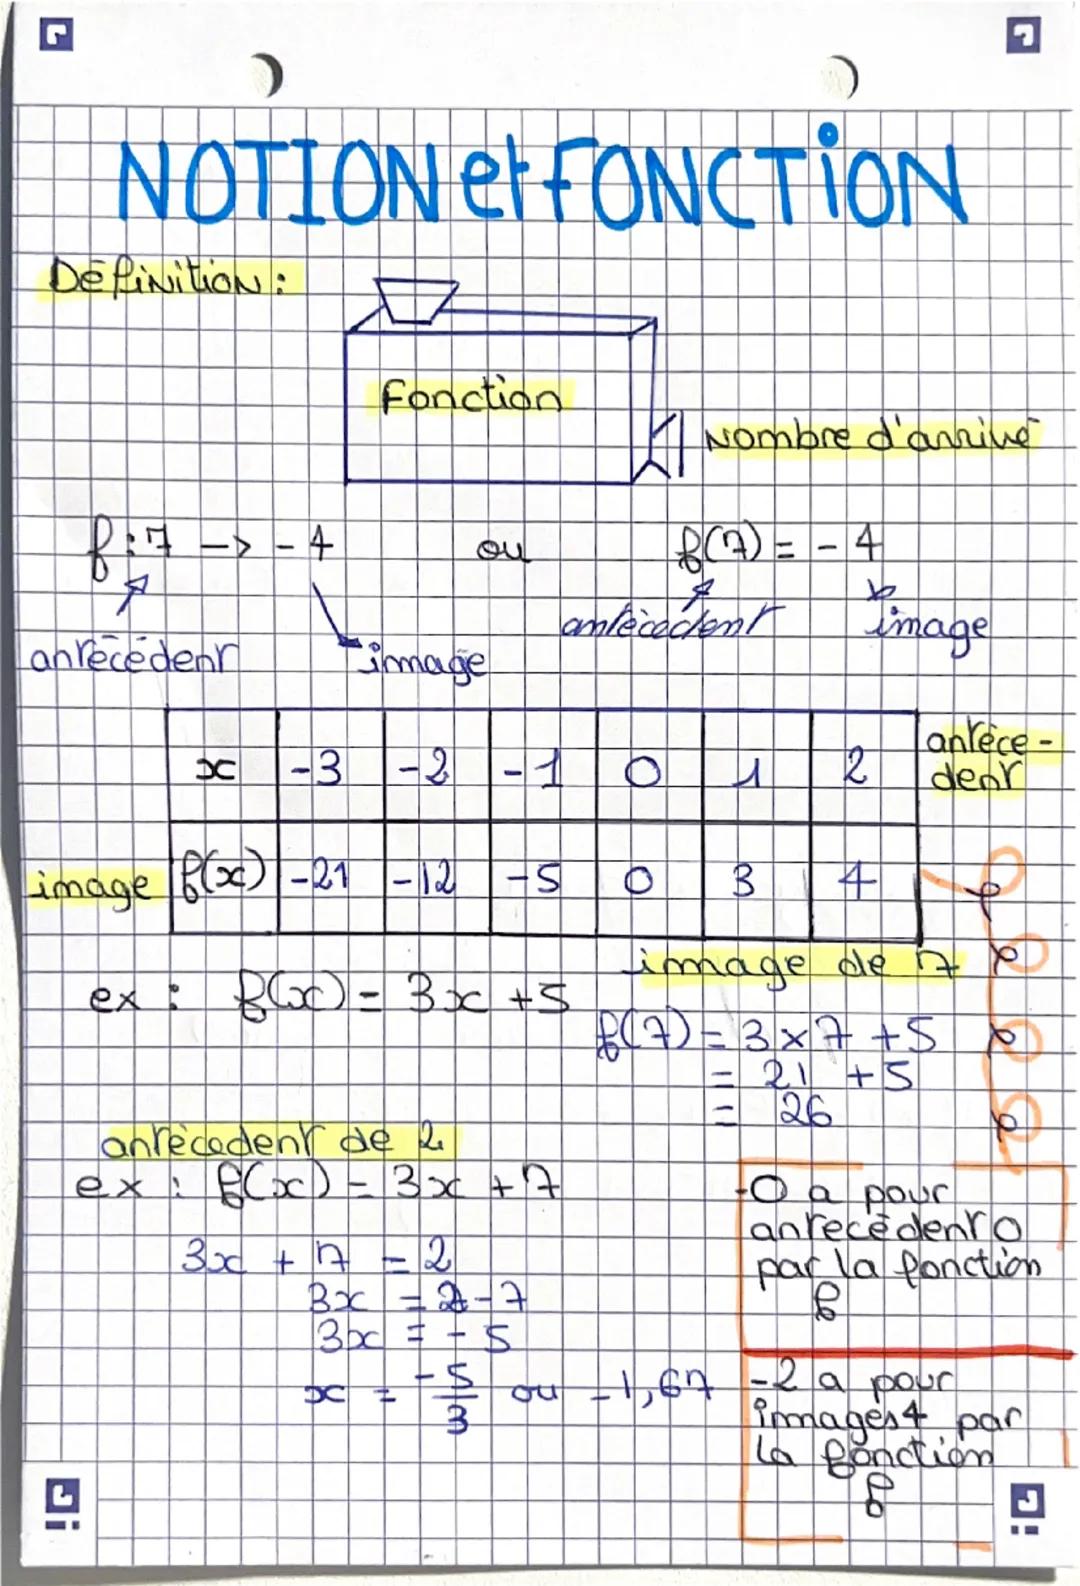 NOTION et FONCTiON
Définition :
Fonction
Nombre d'arrivé
f : 7 -> - 4 ou f(7) = - 4
antécédent image
antécédent image
x -3 -2 -1 0 1 2 antéce-
dent
image f(x) -21 -12 -5 0 3 4
image de 7
ex : f(x) = 3x +5
f(7) = 3 x 7 + 5
= 21 + 5
= 26
antécedent de 2
ex : f(x) = 3x + 7
3x + 7 = 2
3x = 2 - 7
3x = - 5
x = -5/3 ou -1,67
-0 a pour
antecédent 0
par la fonction
f
-2 a pour
images 4 par
la fonction
f